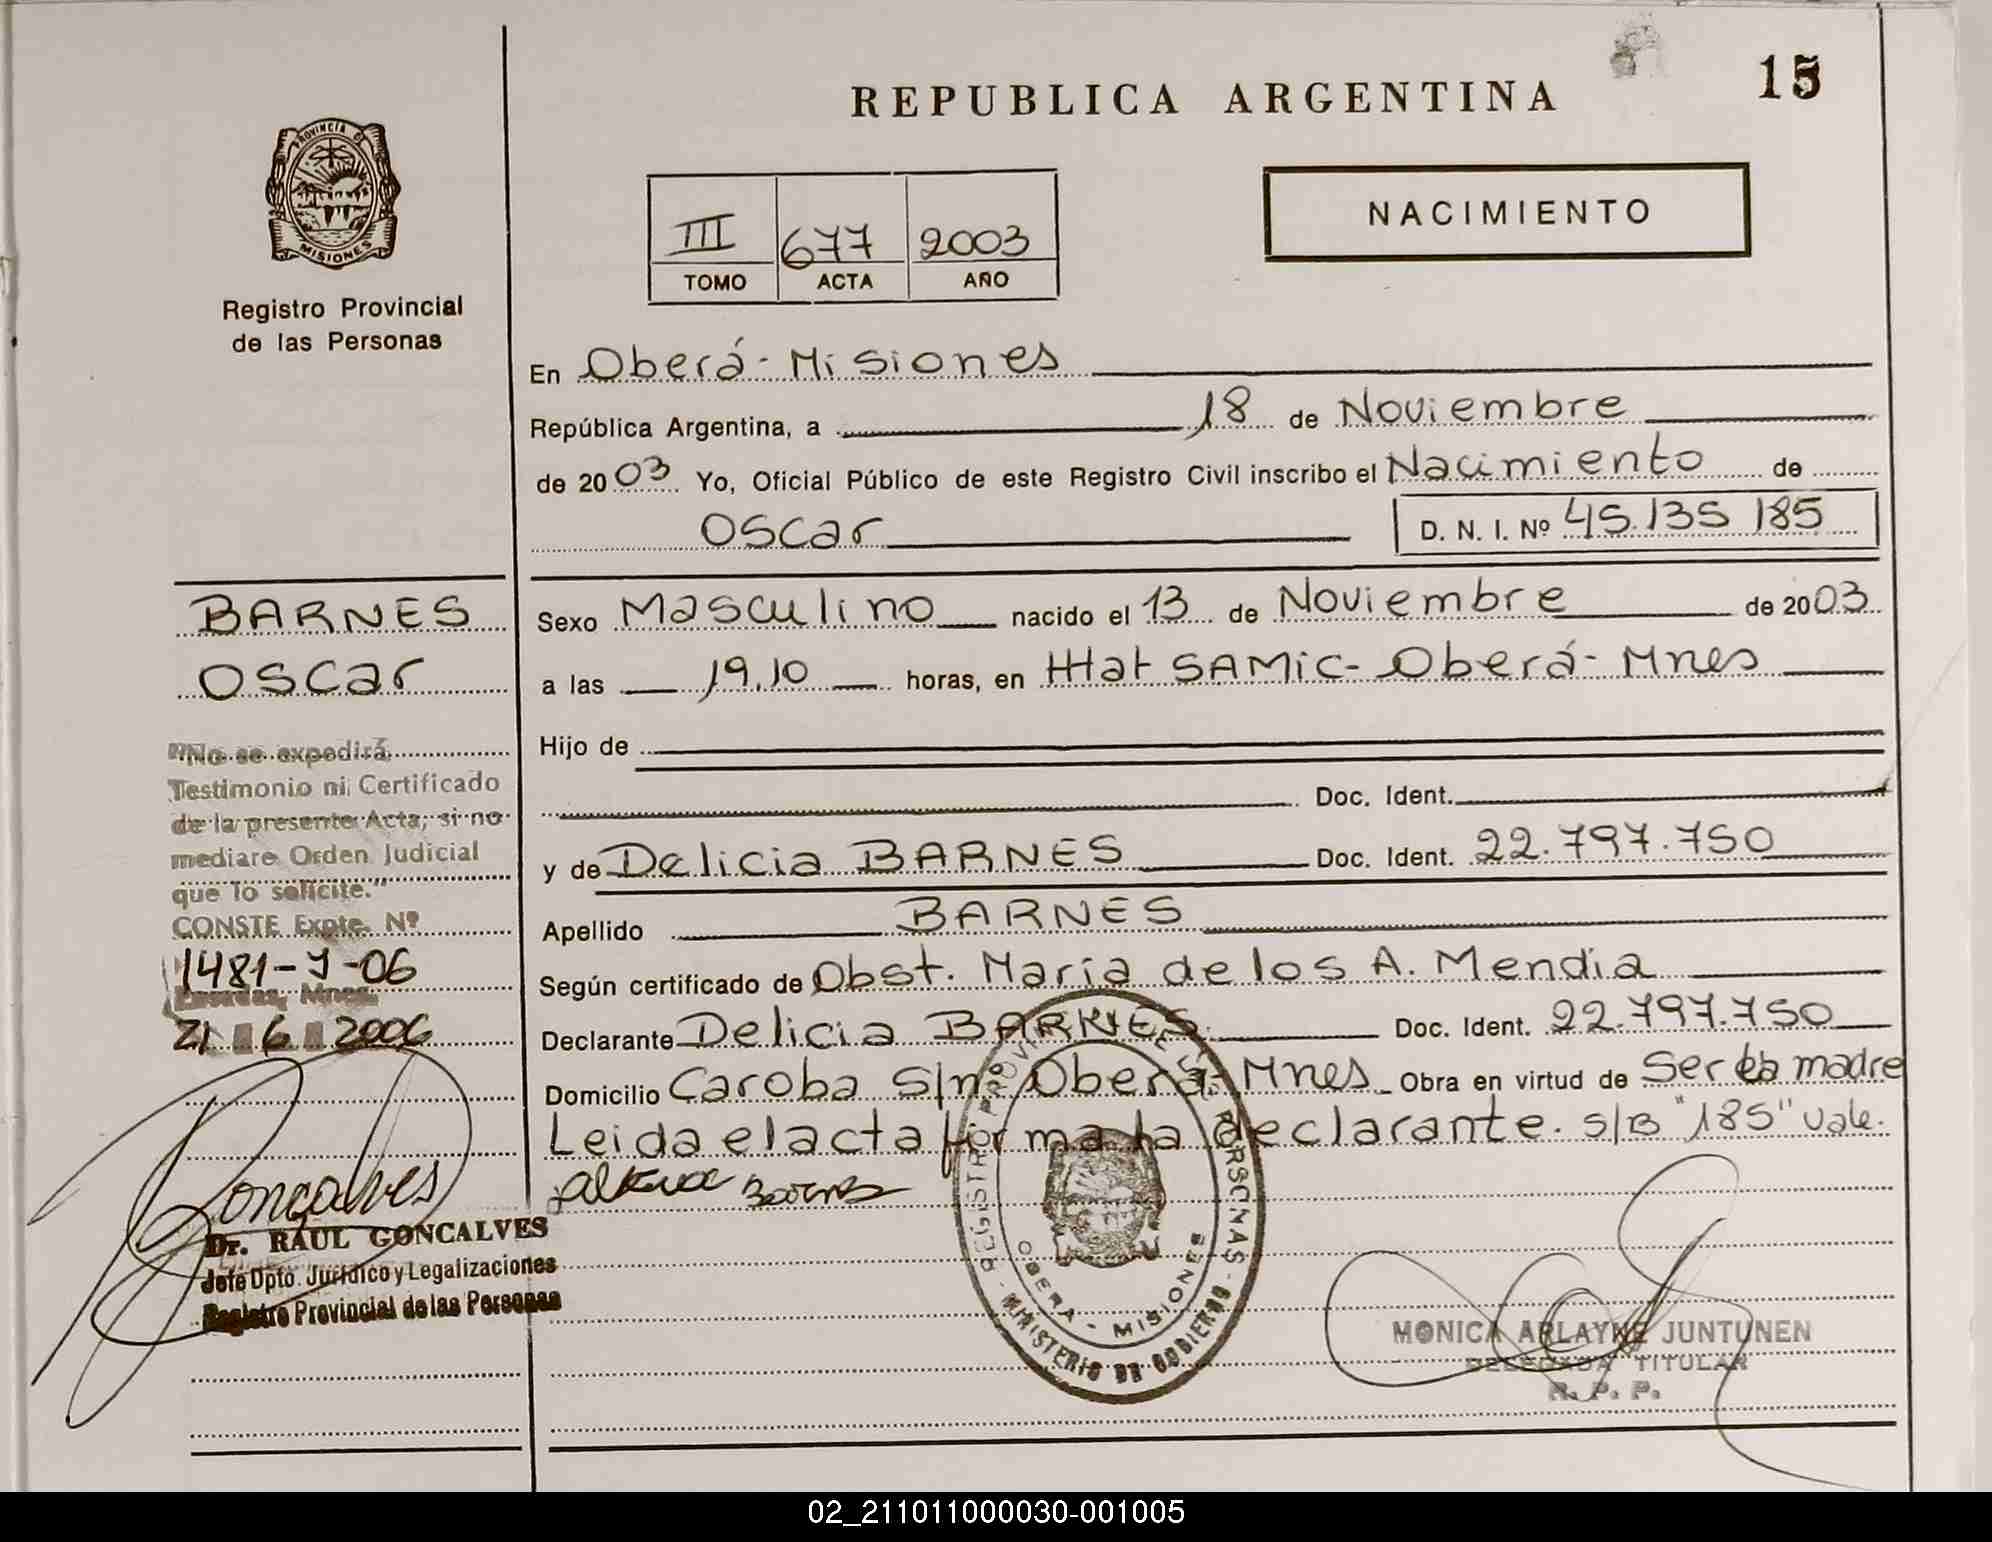 REPUBLICA ARGENTINA
15
PROVINCIA DE
MISIONES
Registro Provincial
de las Personas
III 677 2003
TOMO ACTA AÑO
NACIMIENTO
En Oberá - Misiones
República Argentina, a 18 de Noviembre
de 2003 Yo, Oficial Público de este Registro Civil inscribo el Nacimiento de
Oscar D. N. I. Nº 45.135 185
BARNES
Oscar
"No se expedirá
Testimonio ni Certificado
de la presente Acta, si no
mediare Orden Judicial
que lo solicite."
CONSTE Expte. Nº
1481-9-06
Posadas, Mnes.
21 6 2006
Gonçalves
Dr. RAUL GONCALVES
Jefe Dpto. Jurídico y Legalizaciones
Registro Provincial de las Personas
Sexo Masculino nacido el 13 de Noviembre de 2003
a las 19,10 horas, en Htat SAMIC - Oberá - Mnes
Hijo de
Doc. Ident.
y de Delicia BARNES Doc. Ident. 22.797.750
Apellido BARNES
Según certificado de Obst. Maria de los A. Mendia
Declarante Delicia BARNES Doc. Ident. 22.797.750
Domicilio Caroba s/n Oberá - Mnes Obra en virtud de Ser la madre
Leida el acta firma la declarante. s/B "185" vale.
Barnes
REGISTRO PROVINCIAL DE LAS PERSONAS - MINISTERIO DE GOBIERNO -
OBERA - MISIONES
MONICA ARLAYNE JUNTUNEN
DELEGADA TITULAR
R. P. P.
02_211011000030-001005